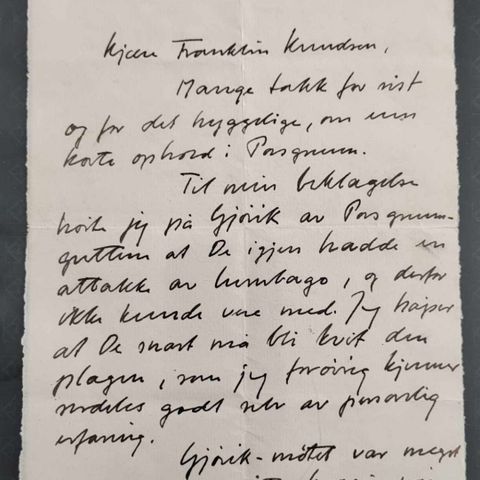 Kjære Franklin Knudsen,
Mange takk for sist
og for det hyggelige, om enn
korte ophold i Porsgrunn.
Til min beklagelse
hørte jeg på Gjövik av Porsgrunn-
guttene at De igjen hadde en
attakke av lumbago, og derfor
ikke kunde være med. Jeg håper
at De snart må bli kvit den
plagen, som jeg forövrig kjenner
særdeles godt selv av personlig
erfaring.
Gjövik-møtet var meget